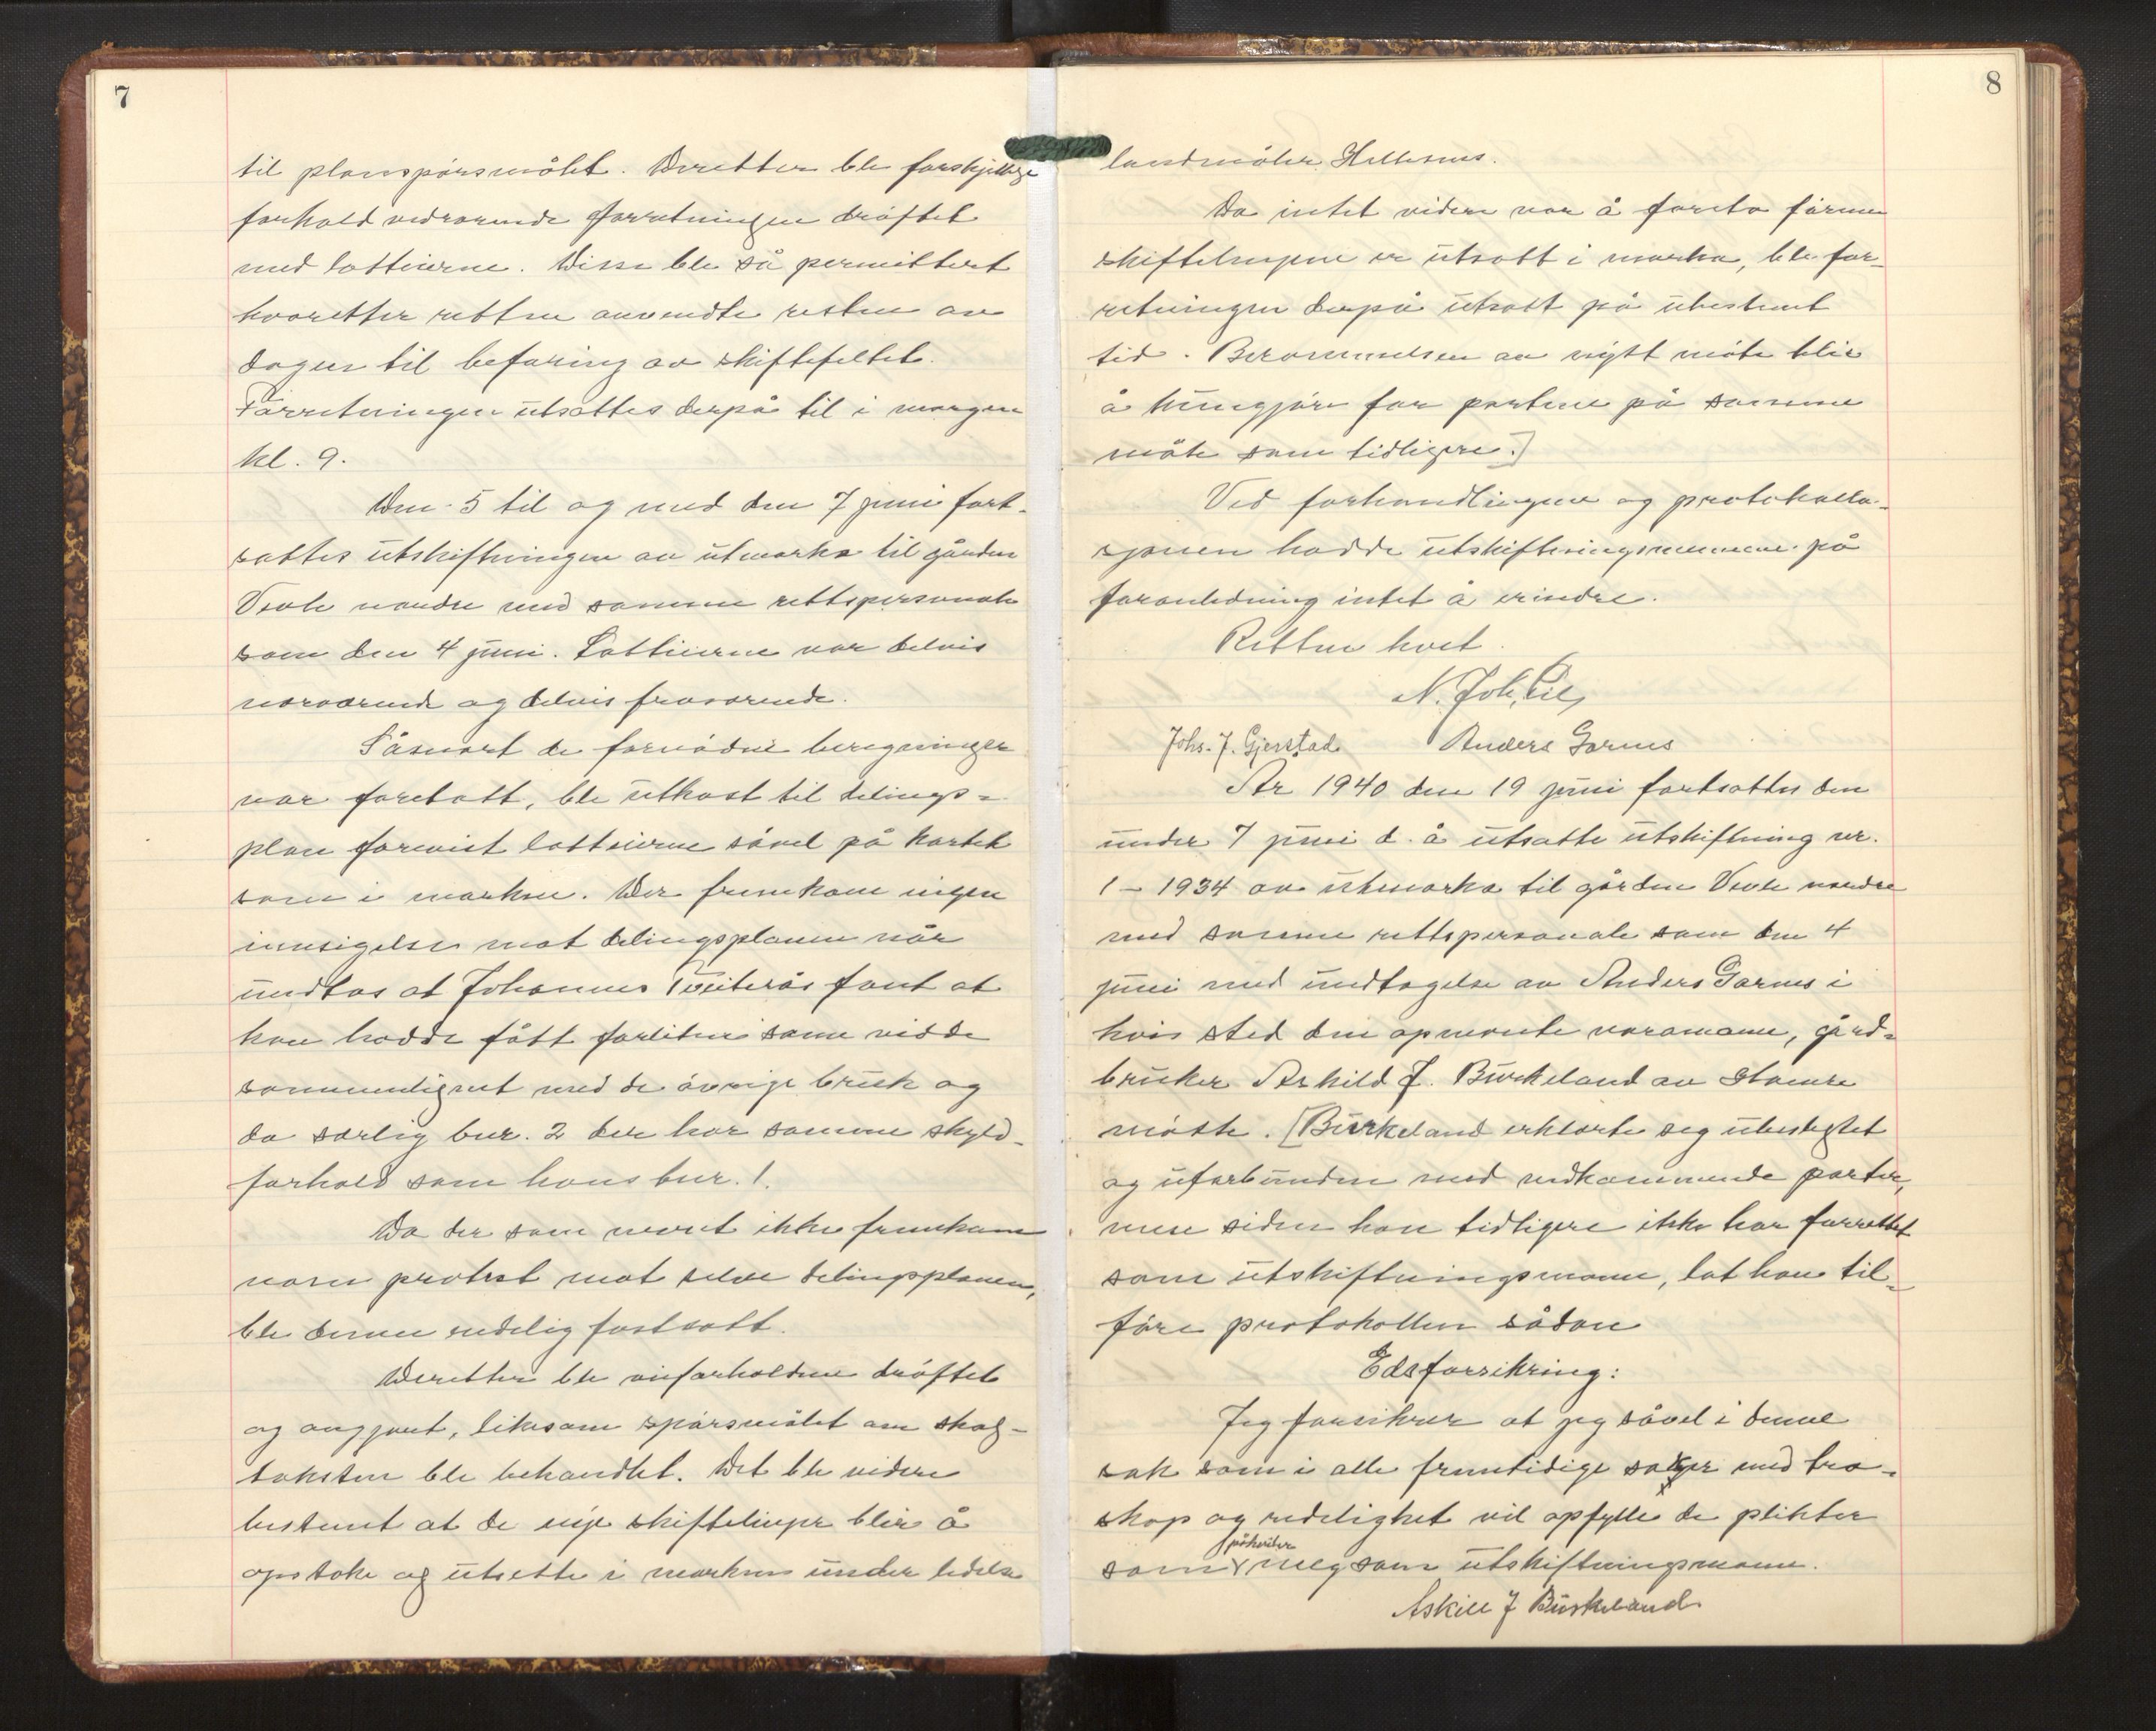 7
til planspørsmålet. Deretter ble forskjellige
forhold vedrørende forretningen drøftet
med lotteierne. Disse ble så permittert
hvoretter retten anvendte resten av
dagen til befaring av skiftefeltet.
Forretningen utsattes derpå til i morgen
kl. 9.
Den 5 til og med den 7 juni fort-
sattes utskiftningen av utmarka til gården
nordre med samme rettspersonale
som den 4 juni. Lotteierne var delvis
nærværende og delvis fraværende.
Såsnart de fornødne beregninger
var foretatt, ble utkast til delings-
plan forevist lotteierne såvel på kartet
som i marken. Der fremkom ingen
innsigelser mot delingsplanen når
undtas at Johannes Tveiterås fant at
han hadde fått forliten som vidde
sammenlignet med de øvrige bruk og
da særlig bnr. 2 der har samme skyld-
forhold som hans bnr. 1.
Da der som nevnt ikke fremkom
noen protest mot selve delingsplanen,
ble denne endelig fastsatt.
Deretter ble veiforholdene drøftet
og avgjort, likesom spørsmålet om skog-
taksten ble behandlet. Det ble videre
bestemt at de nye skiftelinjer blir å
opstake og utsette i marken under ledelse
8
landmåler Hellesnes.
Da intet videre var å foreta førenn
skiftelinjene er utsatt i marka, ble for-
retningen derpå utsatt på ubestemt
tid. Berammelsen av nytt møte blir
å kunngjøre for partene på samme
måte som tidligere.]
Ved forhandlingene og protokolla-
sjonen hadde utskiftningsmennene på
foranledning intet å erindre.
Retten hevet.
N. Joh.
Johs. J. Gjerstad Anders Garnes
År 1940 den 19 juni fortsattes den
under 7 juni d. å utsatte utskiftning nr.
1 - 1934 av utmarka til gården nordre
med samme rettspersonale som den 4
juni med undtagelse av Anders Garnes i
hvis sted den opnevnte varamann, gård-
bruker Askild J. Burkeland av Hamre
møtte. [Burkeland erklærte seg ubeslegtet
og uforbunden med vedkommende parter,
men siden han tidligere ikke har forrettet
som utskiftningsmann, lot han til-
føre protokollen sådan
Edsforsikring:
Jeg forsikrer at jeg såvel i denne
sak som i alle fremtidige saker med tro-
skap og redelighet vil opfylle de plikter
som påhviler meg som utskiftningsmann.
Askill J Burkeland